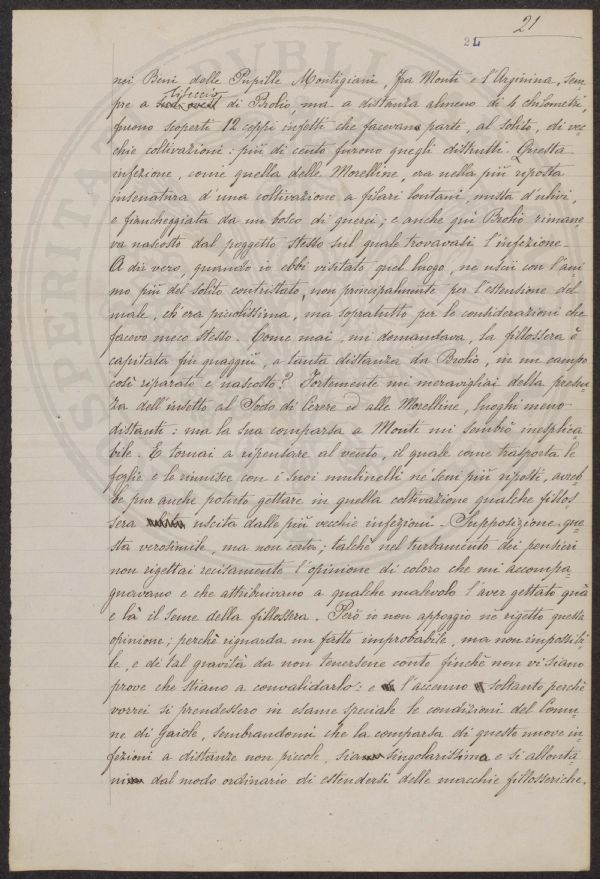 21
21
nei Beni delle Pupille Montigiani, fra Monti e l'Arginina, sem-
libeccio
pre a sud-ovest di Brolio, ma a distanza almeno di 4 chilometri,
furono scoperti 12 ceppi infetti che facevano parte, al solito, di vec-
chie coltivazioni: più di cento furono quegli distrutti. Questa
infezione, come quella delle Morelline, era nella più riposta
insenatura d'una coltivazione a filari lontani, mista d'ulivi,
e fiancheggiata da un bosco di querci; e anche qui Brolio rimane-
va nascosto dal poggetto stesso sul quale trovavasi l'infezione.
A dir vero, quando io ebbi visitato quel luogo, ne uscii con l'ani-
mo più del solito contristato, non principalmente per l'estensione del
male, ch'era piccolissima, ma sopratutto per le considerazioni che
facevo meco stesso. Come mai, mi domandava, la fillossera è
capitata fin quaggiù, a tanta distanza da Brolio, in un campo
così riparato e nascosto? Fortemente mi meravigliai della presen-
za dell'insetto al Sodo di Cerere ed alle Morelline, luoghi meno
distanti: ma la sua comparsa a Monti mi sembrò inesplica-
bile. E tornai a ripensare al vento, il quale come trasporta le
foglie e le riunisce con i suoi mulinelli ne' seni più riposti, avreb-
be pur anche potuto gettare in quella coltivazione qualche fillos-
sera uscita dalle più vecchie infezioni. Supposizione que-
sta verosimile, ma non certa; talchè nel turbamento dei pensieri
non rigettai recisamente l'opinione di coloro che mi accompa-
gnavano e che attribuivano a qualche malevolo l'aver gettato quà
e là il seme della fillossera. Però io non appoggio nè rigetto questa
opinione; perchè riguarda un fatto improbabile, ma non impossibi-
le, e di tal gravità da non tenersene conto finchè non vi siano
prove che stiano a convalidarlo: e l'accenno soltanto perchè
vorrei si prendessero in esame speciale le condizioni del Comu-
ne di Gaiole, sembrandomi che la comparsa di queste nuove in-
fezioni a distanze non piccole, sia singolarissima e si allonta-
ni dal modo ordinario di estendersi delle macchie fillosseriche.